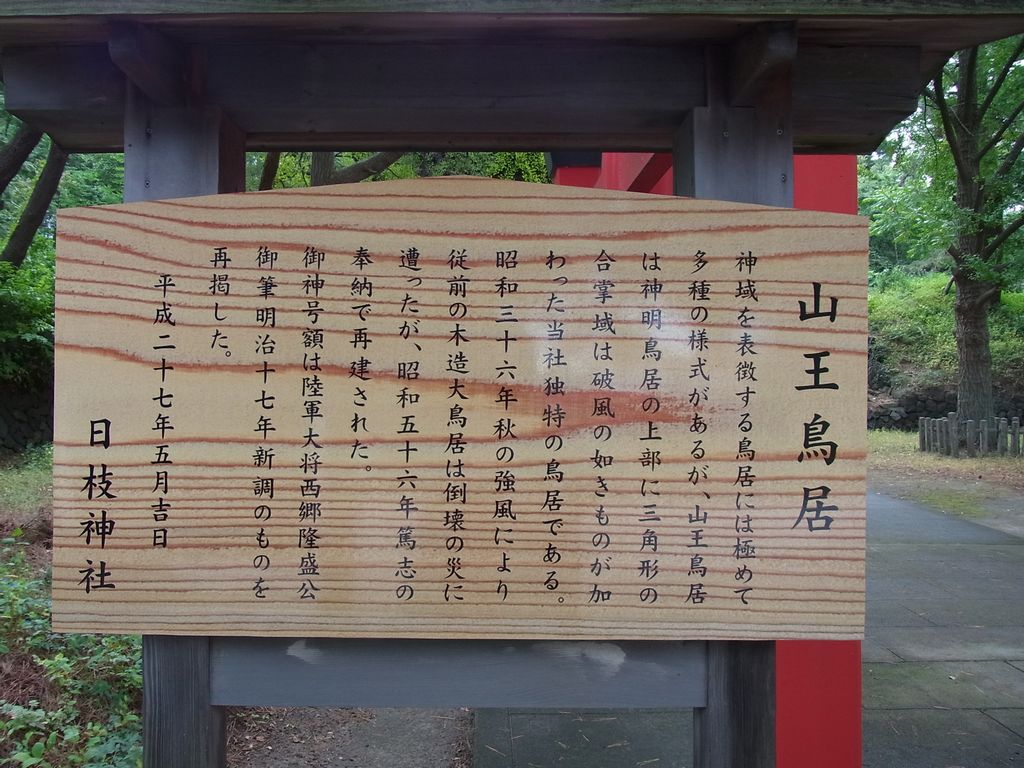 山王鳥居
神域を表徴する鳥居には極めて
多種の様式があるが、山王鳥居
は神明鳥居の上部に三角形の
合掌域は破風の如きものが加
わった当社独特の鳥居である。
昭和三十六年秋の強風により
従前の木造大鳥居は倒壊の災に
遭ったが、昭和五十六年篤志の
奉納で再建された。
御神号額は陸軍大将西郷隆盛公
御筆明治十七年新調のものを
再掲した。
平成二十七年五月吉日
日枝神社